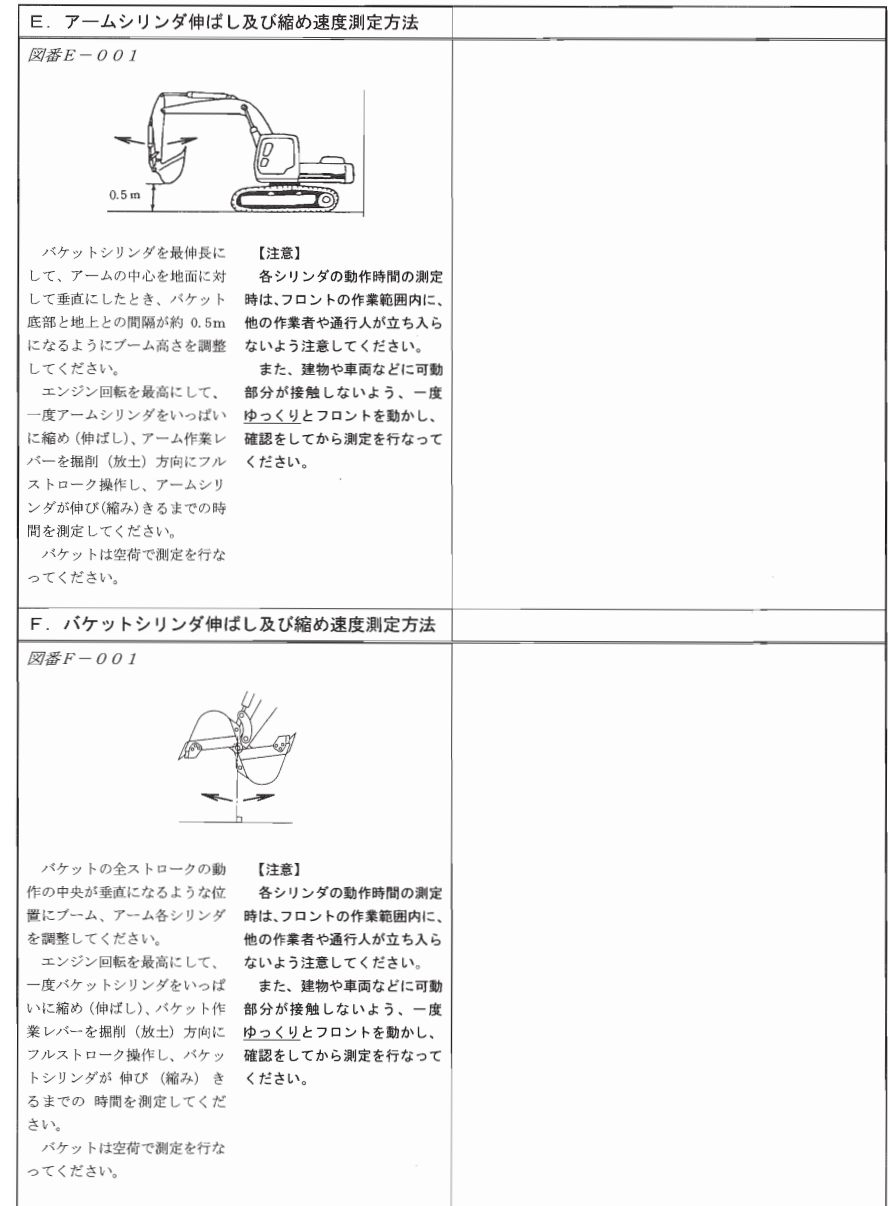 E．アームシリンダ伸ばし及び縮め速度測定方法
図番E－００１
0.5 m
バケットシリンダを最伸長に
して、アームの中心を地面に対
して垂直にしたとき、バケット
底部と地上との間隔が約 0.5m
になるようにブーム高さを調整
してください。
エンジン回転を最高にして、
一度アームシリンダをいっぱい
に縮め（伸ばし）、アーム作業レ
バーを掘削（放土）方向にフル
ストローク操作し、アームシリ
ンダが伸び（縮み）きるまでの時
間を測定してください。
バケットは空荷で測定を行な
ってください。
【注意】
各シリンダの動作時間の測定
時は、フロントの作業範囲内に、
他の作業者や通行人が立ち入ら
ないよう注意してください。
また、建物や車両などに可動
部分が接触しないよう、一度
ゆっくりとフロントを動かし、
確認をしてから測定を行なって
ください。
F．バケットシリンダ伸ばし及び縮め速度測定方法
図番F－００１
バケットの全ストロークの動
作の中央が垂直になるような位
置にブーム、アーム各シリンダ
を調整してください。
エンジン回転を最高にして、
一度バケットシリンダをいっぱ
いに縮め（伸ばし）、バケット作
業レバーを掘削（放土）方向に
フルストローク操作し、バケッ
トシリンダが 伸び （縮み） き
るまでの 時間を測定してくだ
さい。
バケットは空荷で測定を行な
ってください。
【注意】
各シリンダの動作時間の測定
時は、フロントの作業範囲内に、
他の作業者や通行人が立ち入ら
ないよう注意してください。
また、建物や車両などに可動
部分が接触しないよう、一度
ゆっくりとフロントを動かし、
確認をしてから測定を行なって
ください。